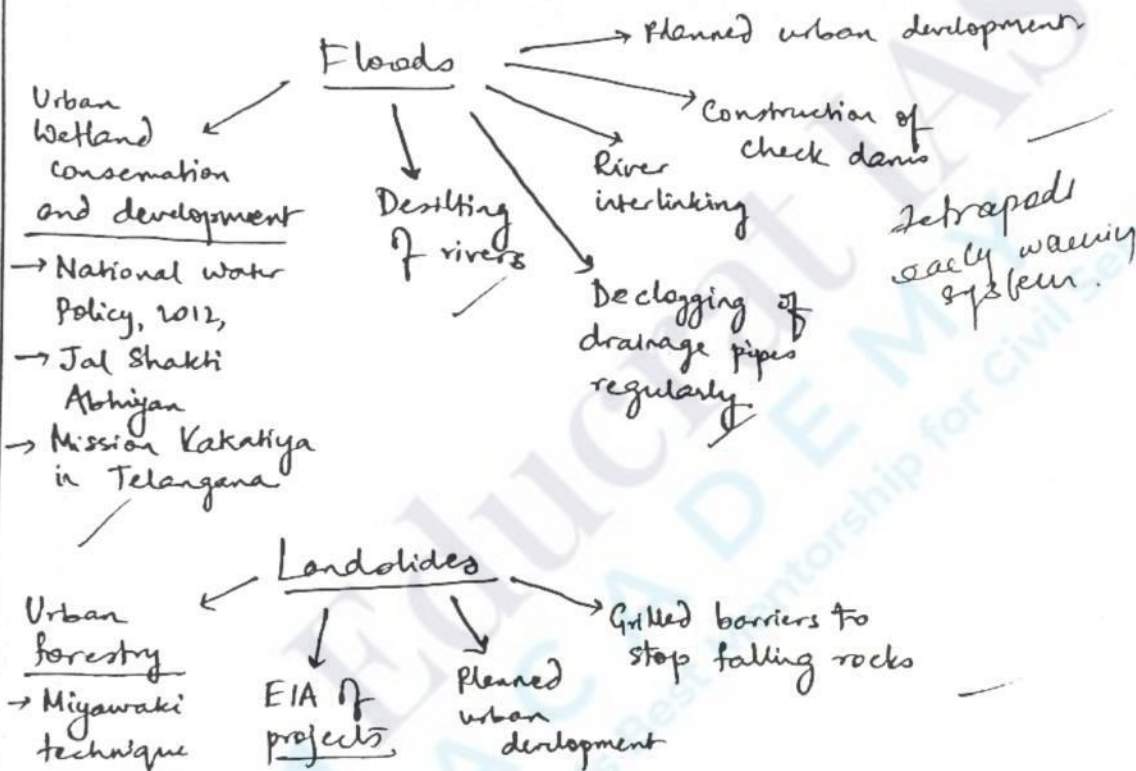 Floods
Planned urban development
Construction of
check dams
River
interlinking
Declogging of
drainage pipes
regularly.
Desilting
of rivers
Urban
Wetland
conservation
and development
→ National water
Policy, 2012,
→ Jal Shakti
Abhiyan
→ Mission Kakatiya
in Telangana
Tetrapods
early warning
system.
Landslides
Urban
forestry
→ Miyawaki
technique
EIA of
projects
Planned
urban
development
Grilled barriers to
stop falling rocks
Educrat IAS
ACADEMY
Best Mentorship for Civil Ser